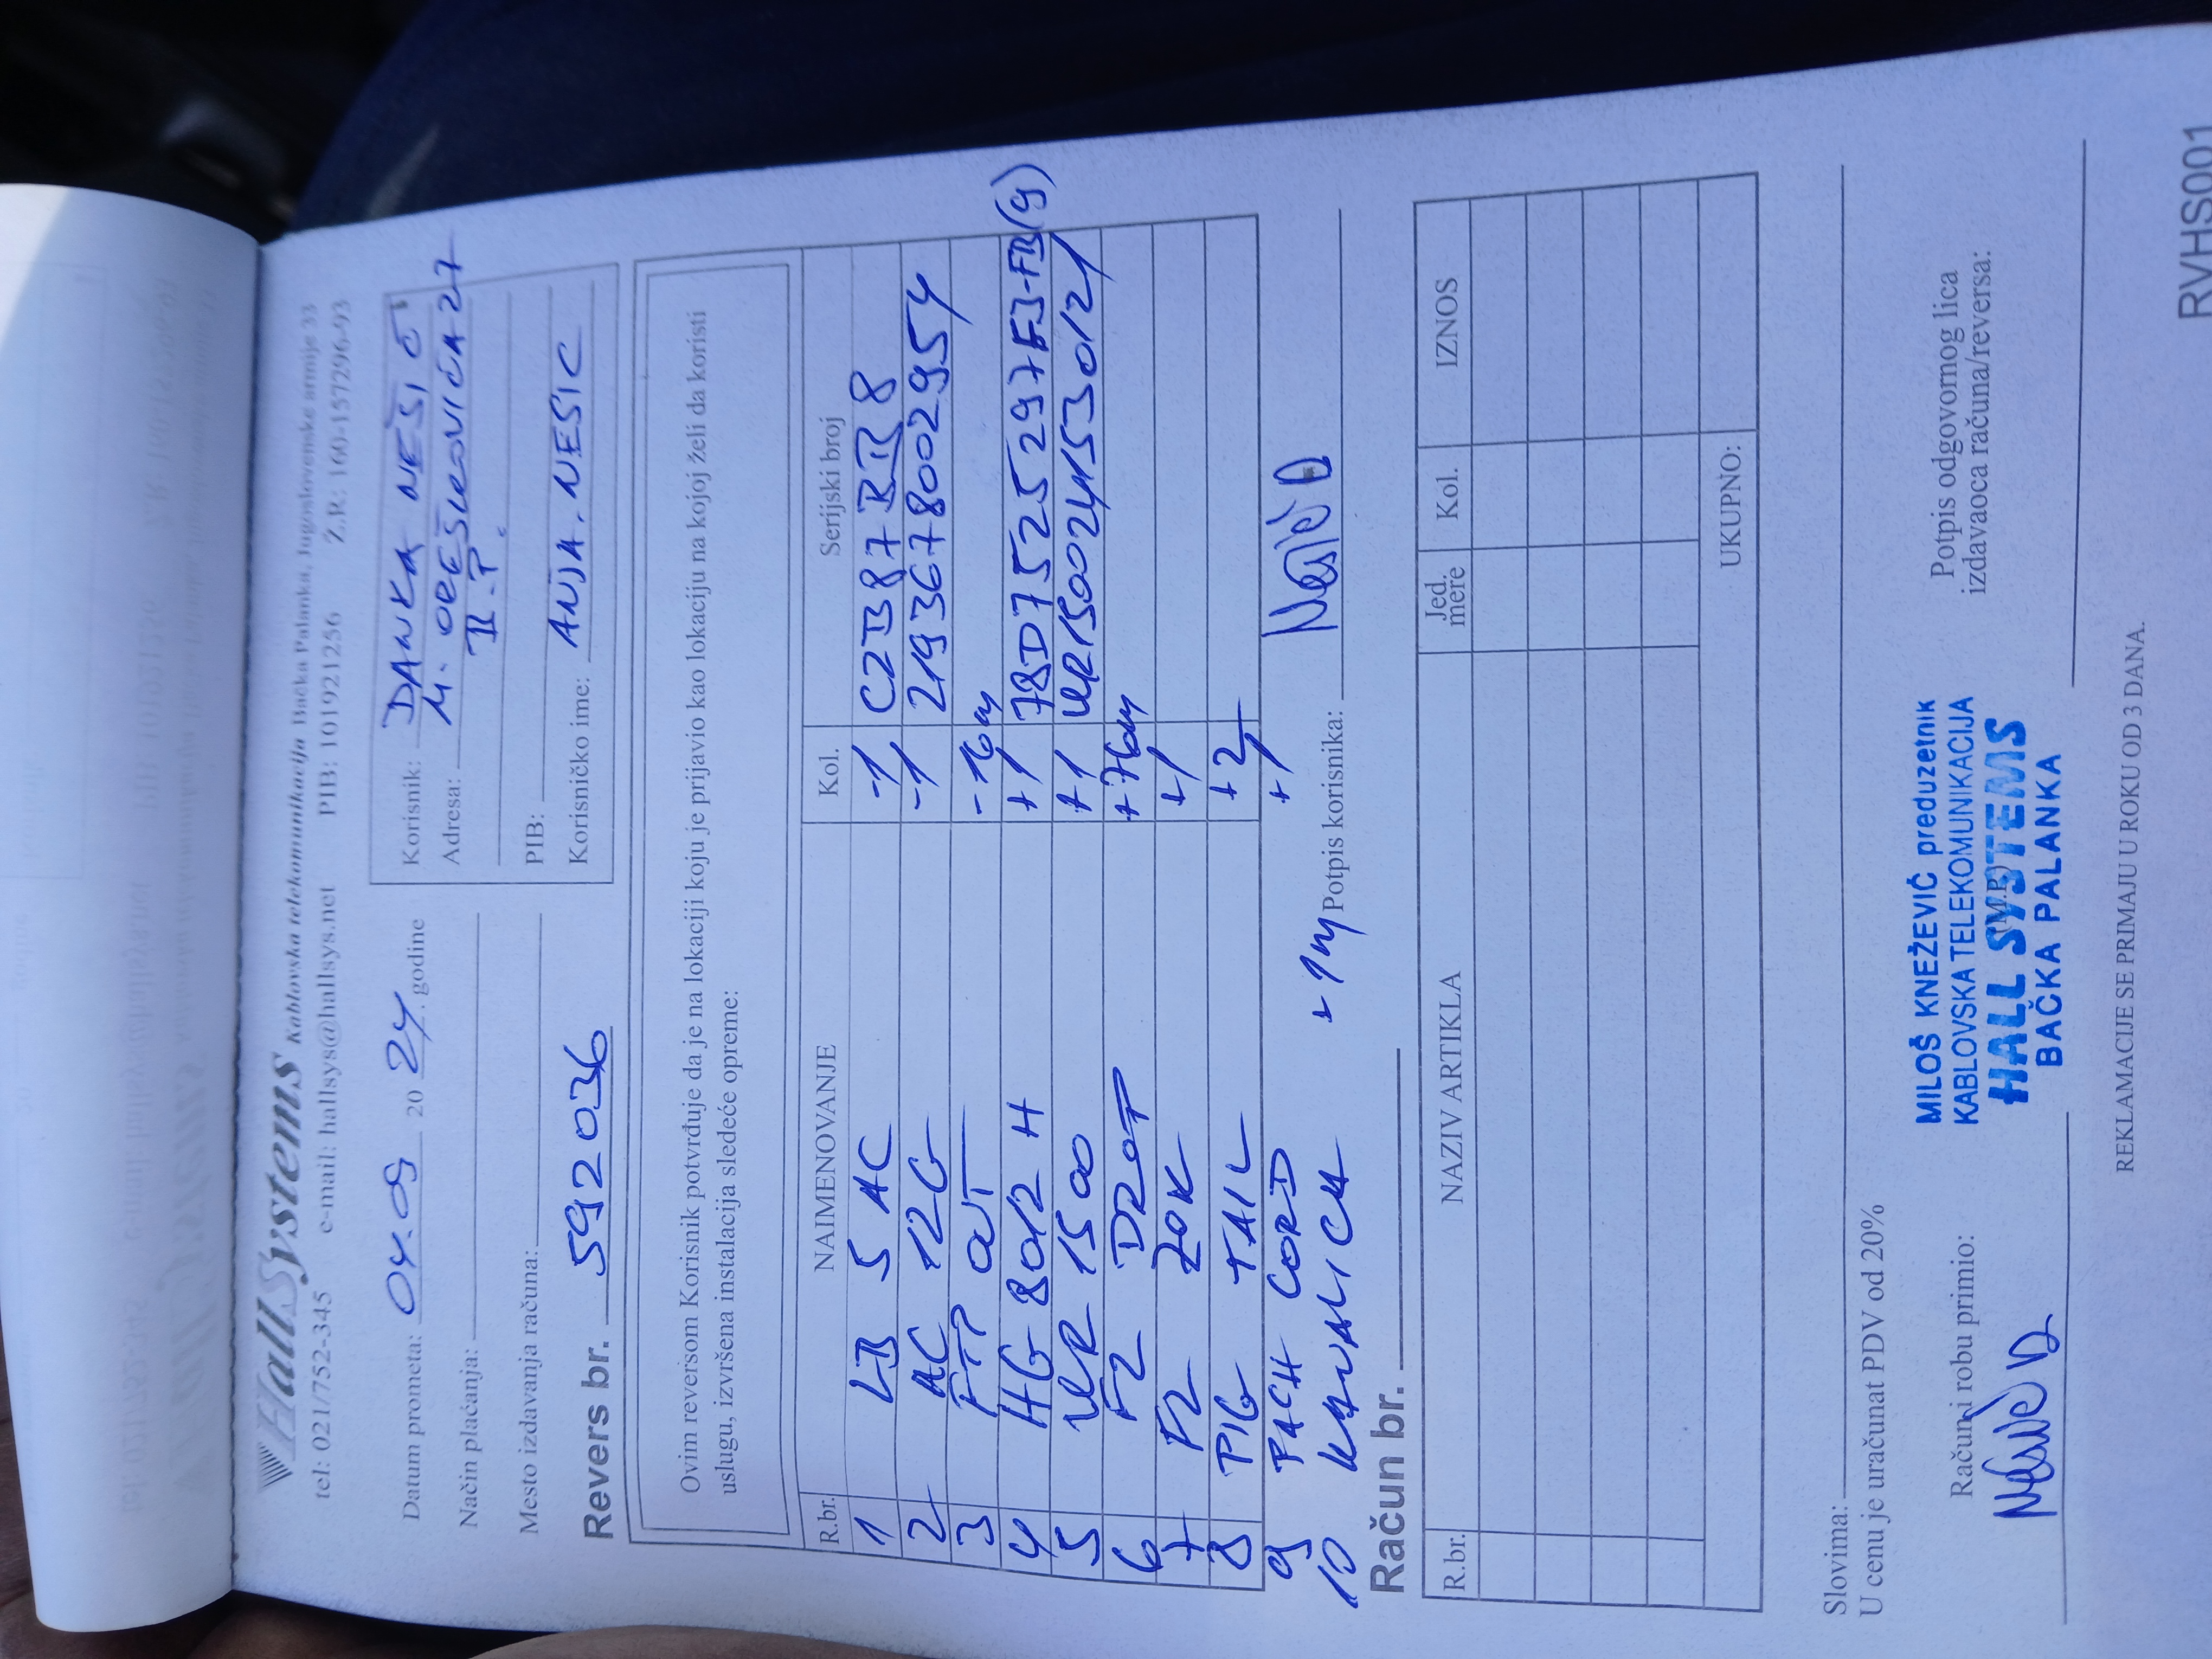 HallSystems Kablovska telekomunikacija Bačka Palanka, Jugoslovenske armije 33
tel: 021/752-345 e-mail: hallsys@hallsys.net PIB: 101921256 Ž.R: 160-157296-93
Datum prometa: 04.09 20 24. godine
Način plaćanja:
Mesto izdavanja računa:
Revers br. 592036
Korisnik: DANKA NEŠIĆ
Adresa: M. OREŠKOVIĆA 27
B.P.
PIB:
Korisničko ime: ANJA.NESIC
Ovim reversom Korisnik potvrđuje da je na lokaciji koju je prijavio kao lokaciju na kojoj želi da koristi
uslugu, izvršena instalacija sledeće opreme:
R.br. NAIMENOVANJE Kol. Serijski broj
1 LB 5 AC -1 C2B87BB8
2 AC 12G -1 2193678002954
3 FTP OUT -16m
4 HG 8012 H +1 78D7525297F3-FB(9)
5 VR 1500 +1
6 FZ DROP +76m
7 FZ ZOK +1
8 PIG TAIL +2
9 PACH CORD +1
10 KANALICA +1m
Potpis korisnika: Nešić D
Račun br.
R.br. NAZIV ARTIKLA Jed. mere Kol. IZNOS
UKUPNO:
Slovima:
U cenu je uračunat PDV od 20%
Račun i robu primio:
Nešić D
MILOŠ KNEŽEVIĆ preduzetnik
KABLOVSKA TELEKOMUNIKACIJA
HALL SYSTEMS
BAČKA PALANKA
M.P.
Potpis odgovornog lica
izdavaoca računa/reversa:
REKLAMACIJE SE PRIMAJU U ROKU OD 3 DANA.
RVHS001